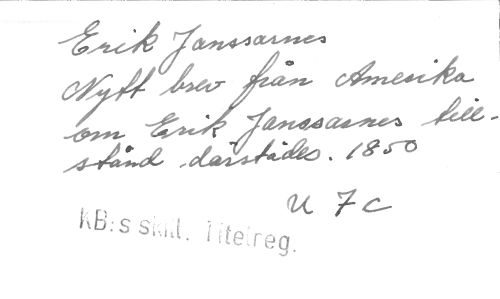 Erik Janssarnes
Nytt brev från Amerika
om Erik Janssarnes till-
stånd därstädes. 1850
U 7 c
KB:s skill. Titelreg.